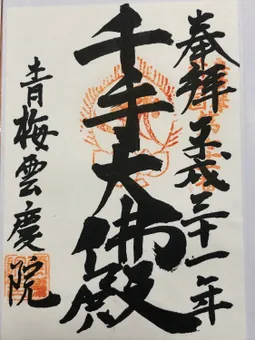 奉拝 平成三十一年
千手大佛殿
青梅雲慶院